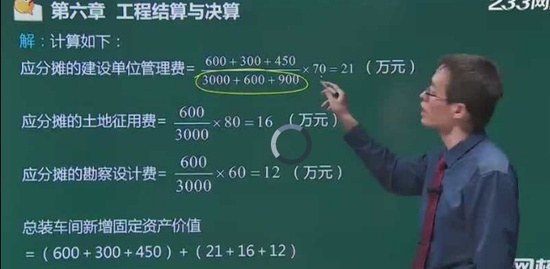 第六章 工程结算与决算
233网校
解：计算如下：
应分摊的建设单位管理费= 600+300+450 / 3000+600+900 ×70=21 （万元）
应分摊的土地征用费= 600 / 3000 ×80=16 （万元）
应分摊的勘察设计费= 600 / 3000 ×60=12 （万元）
总装车间新增固定资产价值
=（600+300+450）+（21+16+12）